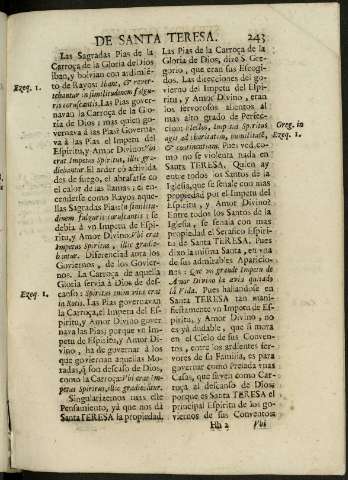 DE SANTA TERESA. 243
Las Sagradas Pias de la
Carroça de la Gloria de Dios
iban, y bolvian con ardimie-
to de Rayos: Ibant, & rever-
tebantur in similitudinem fulgu-
ris coruscantis. Las Pias gover-
navan la Carroça de la Glo-
ria de Dios: mas quien go-
vernava á las Pias? Governa
va á las Pias el Impetu del
Espiritu, y Amor Divino: Vbi
erat Impetus Spiritus, illic gra-
diebantur. El arder có activida-
des de fuego, el abrasarse có
el calor de las llamas; el en-
cenderse como Rayos aque-
llas Sagradas Pias: In similitu-
dinem fulguris coruscantis: se
debia á vn Impetu de Espi-
ritu, y Amor Divino: Vbi erat
Impetus Spiritus, illic gradie-
bantur. Differencia ád antes los
Goviernos, de los Govier-
nos. La Carroça de aquella
Gloria servia á Dios de des-
canso: Spiritus enim vita erat
in Rotis. Las Pias governavan
la Carroça, el Impetu del Es-
piritu, y Amor Divino gover
navan las Pias; porque vn Im-
petu de Espiritu, y Amor Di-
vino, ha de governar á los
que goviernan aquellas Mo-
radas, q̃ son descanso de Dios,
como la Carroça: Vbi erat Im-
petus Spiritus, illic gradiebantur.
Singularizemos mas este
Pensamiento, yá que nos dá
Santa TERESA la propiedad.
Ezeq. 1.
Ezeq. 1.
Las Pias de la Carroça de la
Gloria de Dios, dixo S. Gre-
gorio, que eran sus Escogi-
dos. Las direcciones del go-
vierno del Impetu del Espi-
ritu, y Amor Divino, eran
los fervorosos alientos al
mas alto grado de Perfec-
cion: Electos, Impetus Spiritus
agit ad charitatem, humilitatē,
& continentiam. Pues ved, co-
mo no se violenta nada en
Santa TERESA. Quien ay
entre todos los Santos de la
Iglesia, que se señale con mas
propiedad por el Impetu del
Espiritu, y Amor Divino?
Entre todos los Santos de la
Iglesia, se señala con mas
propiedad el Serafico Espiri-
tu de Santa TERESA. Pues
dixo la misma Santa, en vna
de sus admirables Aparicio-
nes: Que vn grande Impetu de
Amor Divino la avia quitado
la Vida. Pues hallandose en
Santa TERESA tan mani-
fiestamente vn Impetu de Es-
piritu, y Amor Divino; no
es yá dudable, que si mora
en el Cielo de sus Conven-
tos, entre los ardientes fer-
vores de su Familia, es para
governar como Prelada vnas
Casas, que sirven como Car-
roça al descanso de Dios:
porque es Santa TERESA el
principal Espiritu de los go-
viernos de sus Conventos:
Greg. in
Ezeq. 1.
Hh 2 Vbi